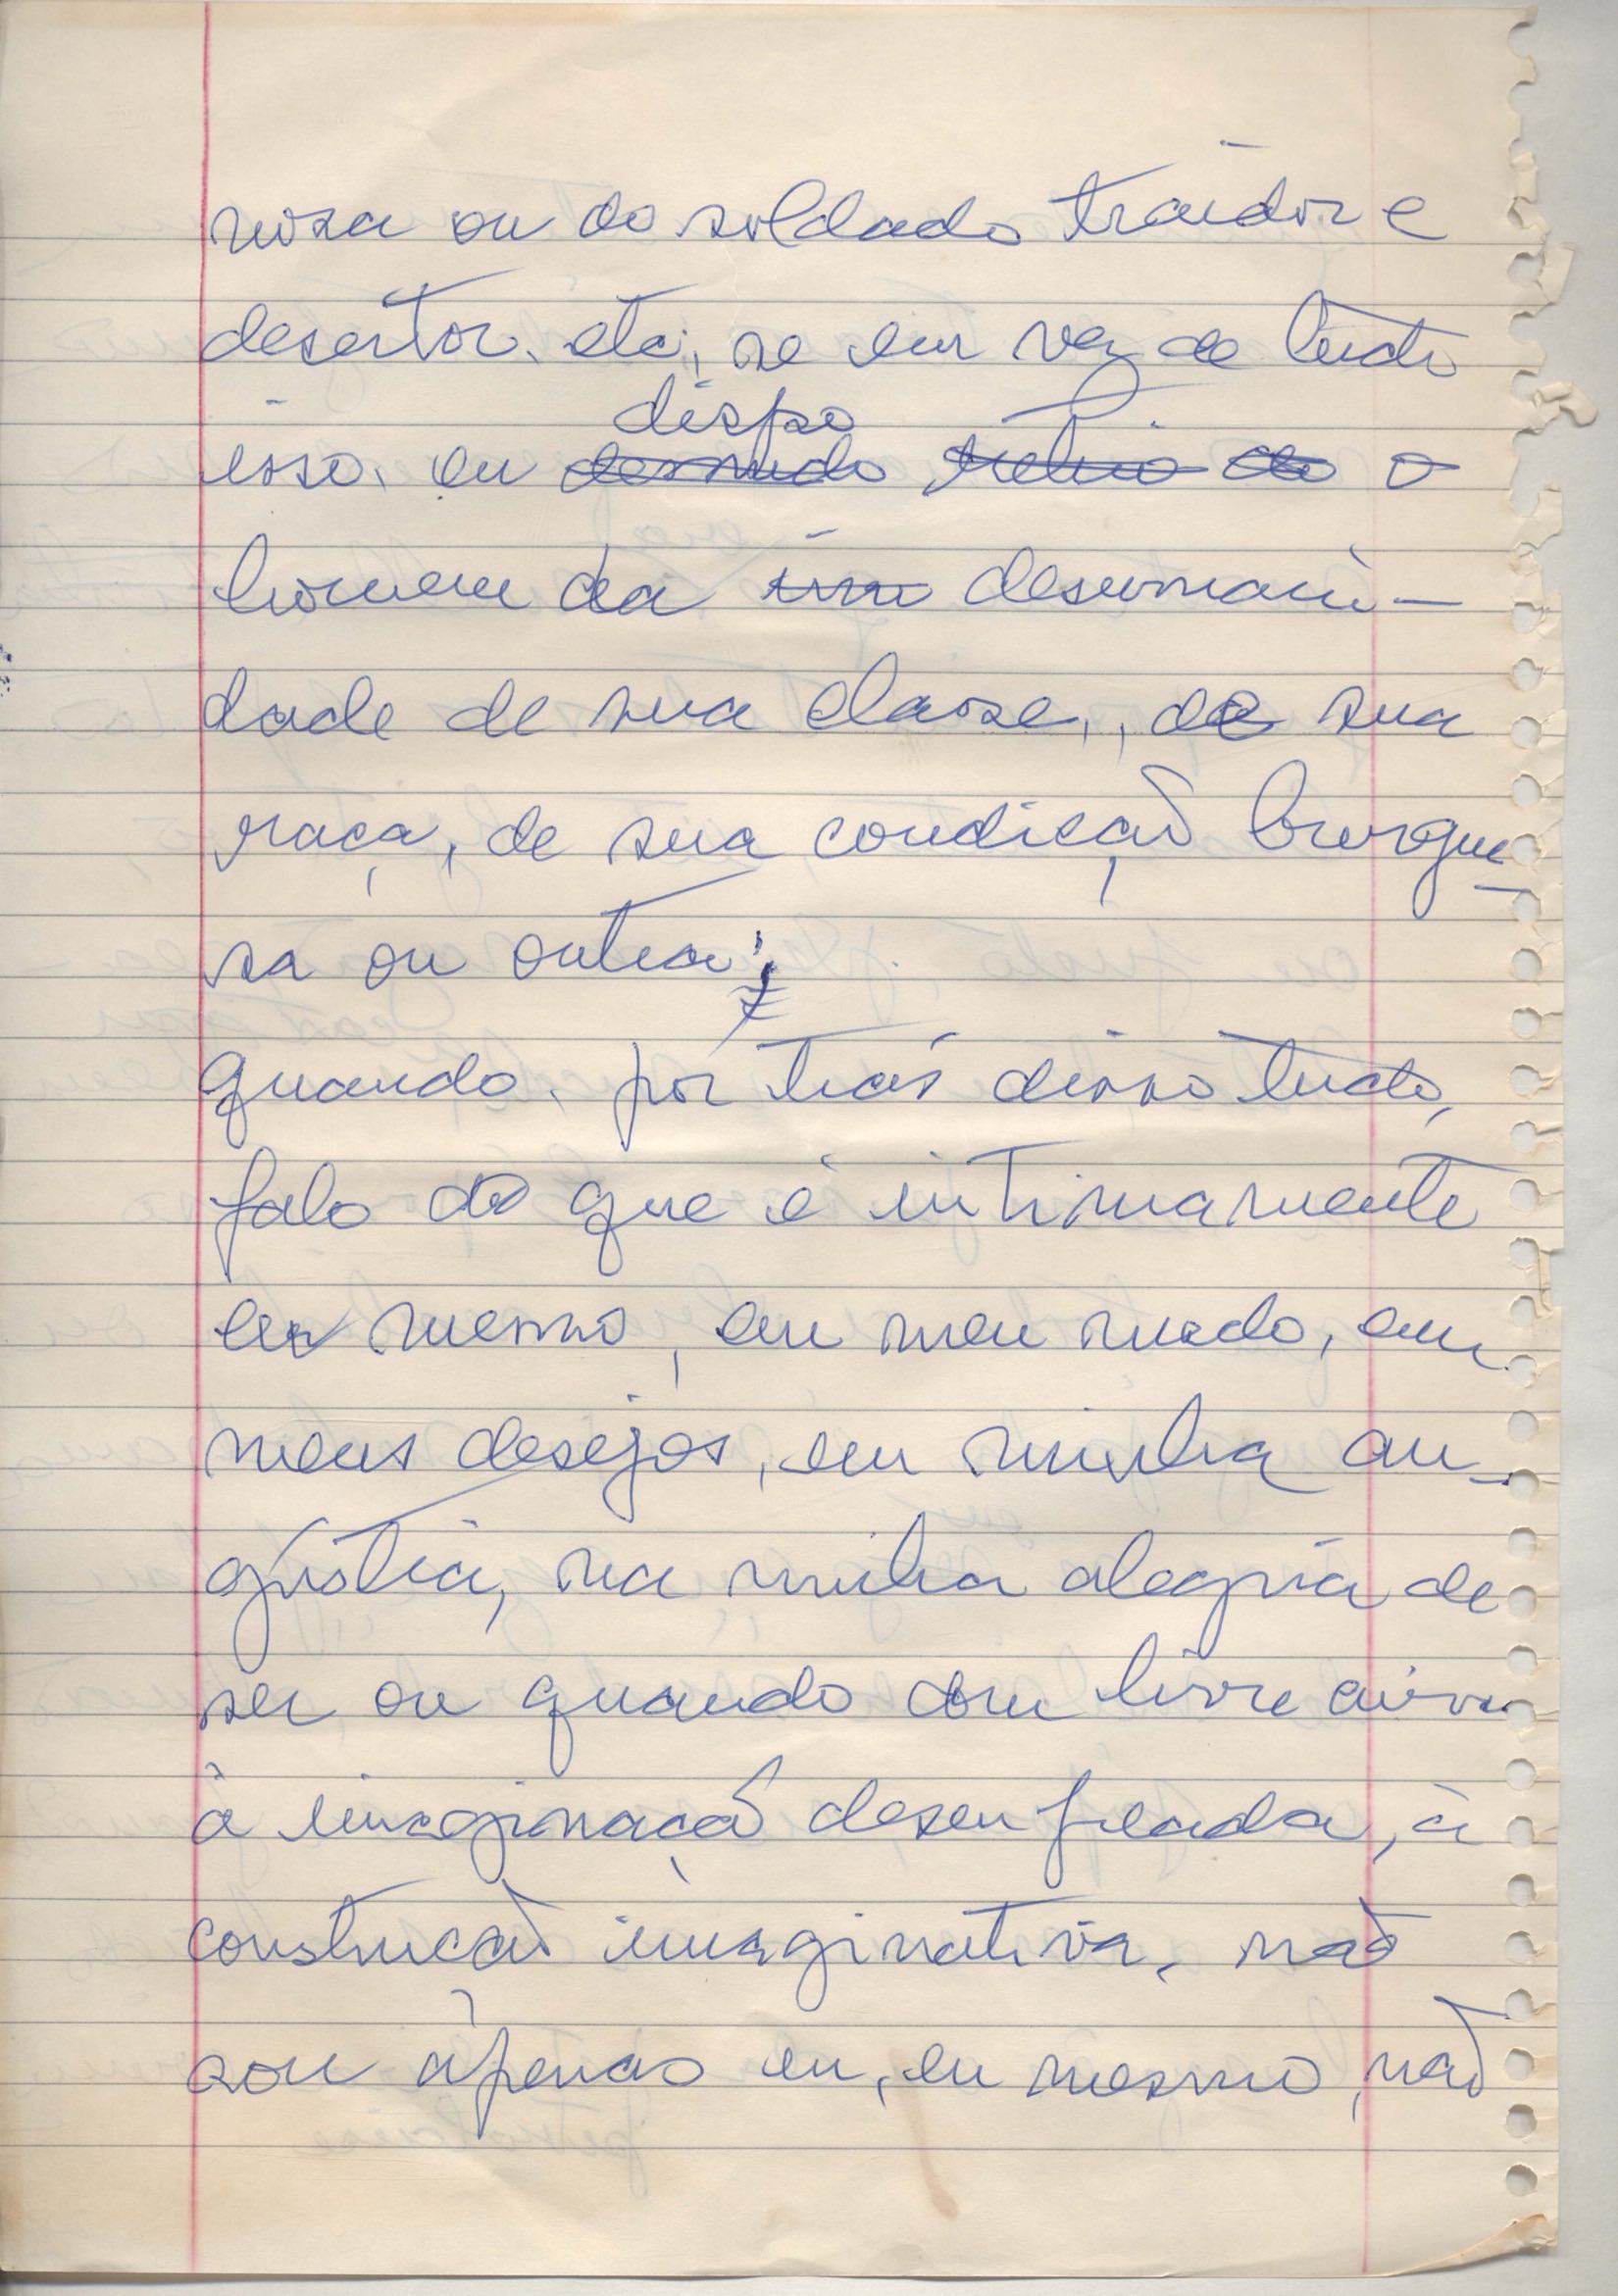 nosa ou do soldado traidor e
desertor, etc, se em vez de tudo
dispo
isso, eu desnudo retiro do o
homem da sua desumani-
dade de sua classe, de sua
raça, de sua condição burgue-
sa ou outra;
quando, por trás disso tudo,
falo do que é intimamente
eu mesmo, em meu medo, em
meus desejos, em minha an-
gústia, na minha alegria de
ser, ou quando dou livre
à imaginação desenfreada, à
construção imaginativa, não
sou apenas eu, eu mesmo, não